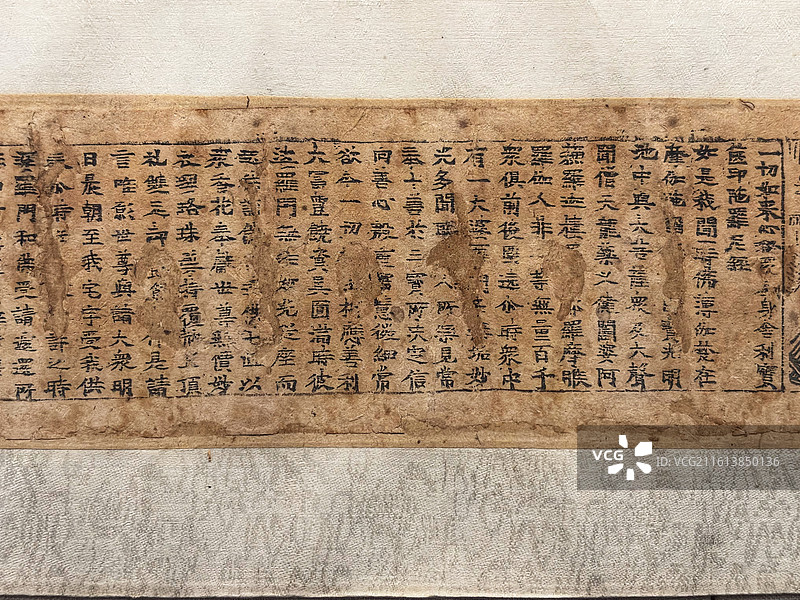 一切如來心秘密全身舍利寶
篋印陁羅尼經
如是我聞一時佛薄伽梵在
摩伽陁寶光明
池中與大菩薩眾及大聲
聞僧天龍藥叉犍闥婆阿
蘇羅迦樓那羅摩睺
羅伽人非等無量百千
眾俱前後圍遶尒時眾中
有一大婆羅門垢妙
光多聞聰人所樂見常
奉十善於三寶所決定信
向善心殷重智慧微細常
欲令一切相應善利
大富豐饒資具圓滿時彼
婆羅門無垢妙光從座而
起往詣佛七匝以
眾香花奉獻世尊無價妙
衣瓔珞珠鬘持覆佛上頂
礼雙足却作是請
言唯願世尊與諸大眾明
日晨朝至我宅中受我供
養尒時許之時
婆羅門知佛受請遽還所
VCG
ID:VCG211613850136